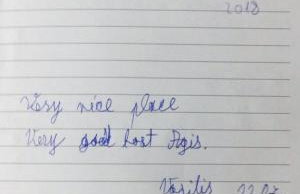 2018
Very nice place
Very good host Agis.
Vasilis